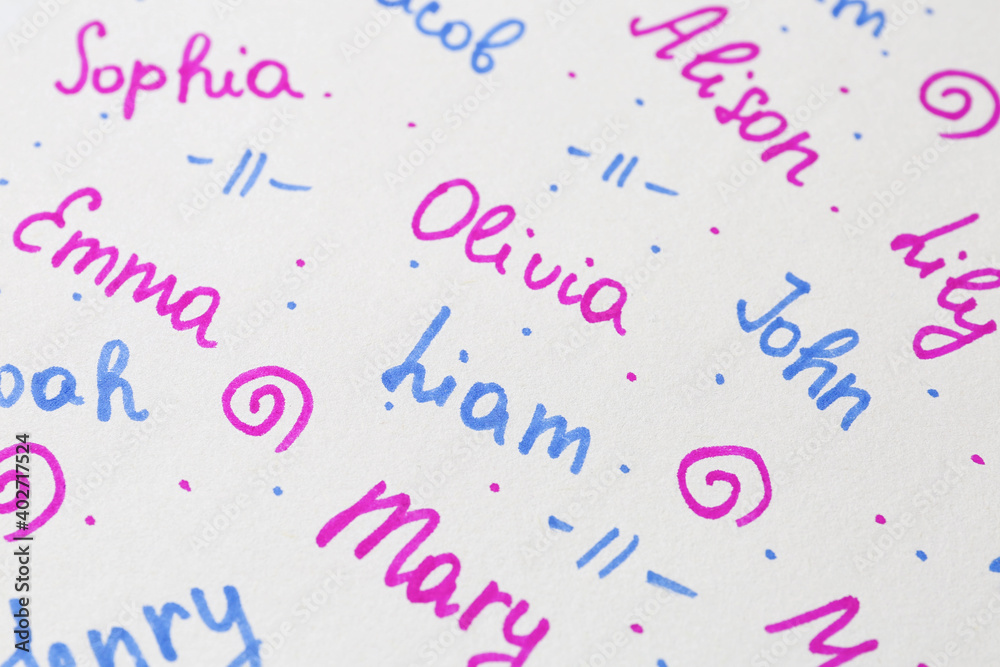 Jacob
Sophia
Alison
Emma
Olivia
Lily
John
Noah
Liam
Mary
Henry
Adobe Stock | #402717524